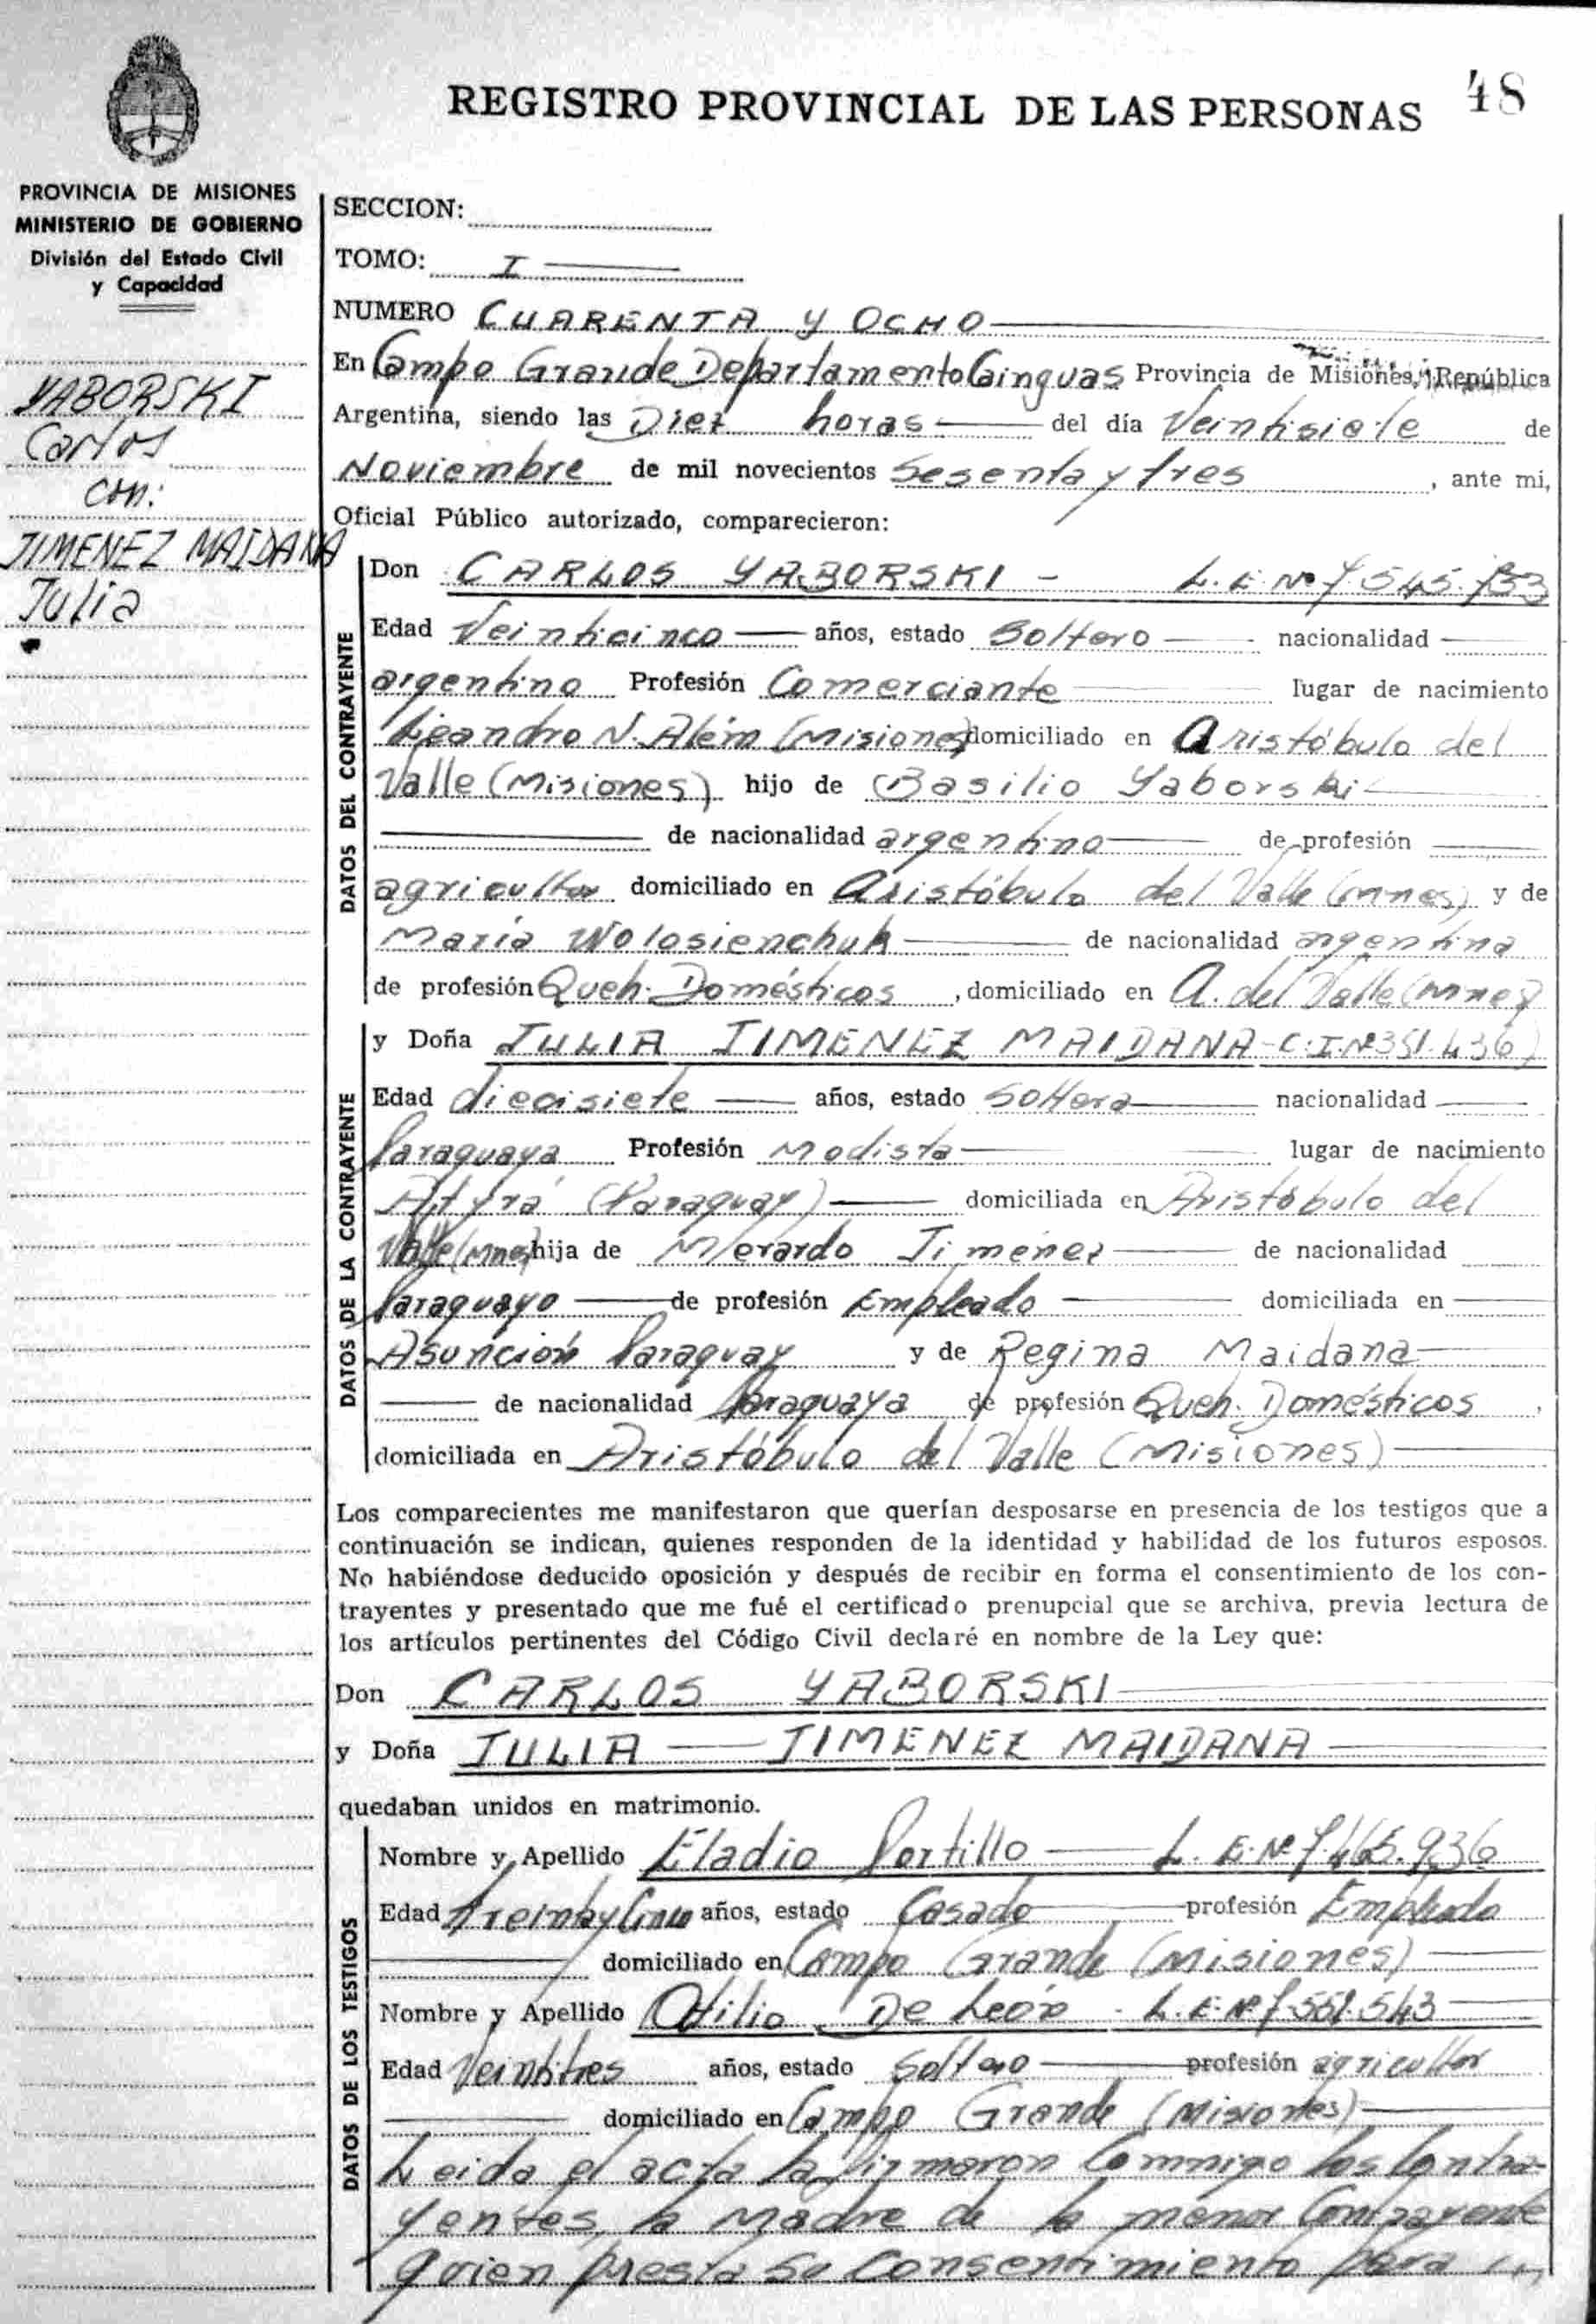 REGISTRO PROVINCIAL DE LAS PERSONAS 48
PROVINCIA DE MISIONES
MINISTERIO DE GOBIERNO
División del Estado Civil
y Capacidad
YABORSKI
Carlos
con:
JIMENEZ MAIDANA
Julia
SECCION:
TOMO: I
NUMERO CUARENTA Y OCHO
En Campo Grande Departamento Cainguas Provincia de Misiones, República
Argentina, siendo las Diez horas del día Veintisiete de
Noviembre de mil novecientos Sesenta y tres, ante mi,
Oficial Público autorizado, comparecieron:
DATOS DEL CONTRAYENTE
Don CARLOS YABORSKI - L. E. Nº 7.545.733
Edad Veinticinco años, estado Soltero nacionalidad
argentino Profesión Comerciante lugar de nacimiento
Leandro N. Além (Misiones) domiciliado en Aristóbulo del
Valle (Misiones) hijo de Basilio Yaborski
de nacionalidad argentino de profesión
agricultor domiciliado en Aristóbulo del Valle (Mnes) y de
María Wolosienchuk de nacionalidad argentina
de profesión Queh. Domésticos, domiciliado en A. del Valle (Mnes)
DATOS DE LA CONTRAYENTE
y Doña JULIA JIMENEZ MAIDANA - C.I. Nº 351.436)
Edad diecisiete años, estado Soltera nacionalidad
Paraguaya Profesión Modista lugar de nacimiento
Atyrá (Paraguay) domiciliada en Aristóbulo del
Valle (Mnes) hija de Merardo Jiménez de nacionalidad
Paraguayo de profesión Empleado domiciliada en
Asunción Paraguay y de Regina Maidana
de nacionalidad Paraguaya de profesión Queh. Domésticos,
domiciliada en Aristóbulo del Valle (Misiones)
Los comparecientes me manifestaron que querían desposarse en presencia de los testigos que a
continuación se indican, quienes responden de la identidad y habilidad de los futuros esposos.
No habiéndose deducido oposición y después de recibir en forma el consentimiento de los con-
trayentes y presentado que me fué el certificado prenupcial que se archiva, previa lectura de
los artículos pertinentes del Código Civil declaré en nombre de la Ley que:
Don CARLOS YABORSKI
y Doña JULIA JIMENEZ MAIDANA
quedaban unidos en matrimonio.
DATOS DE LOS TESTIGOS
Nombre y Apellido Eladio Portillo L. E. Nº 7.465.936
Edad Treinta y Cinco años, estado Casado profesión Empleado
domiciliado en Campo Grande (Misiones)
Nombre y Apellido Otilio De León - L. E. Nº 7.551.543
Edad Veintitres años, estado Soltero profesión agricultor
domiciliado en Campo Grande (Misiones)
Leida el acta la firmaron Commigo los Contra-
yentes, la Madre de la menor Contrayente
quien presta su consentimiento para